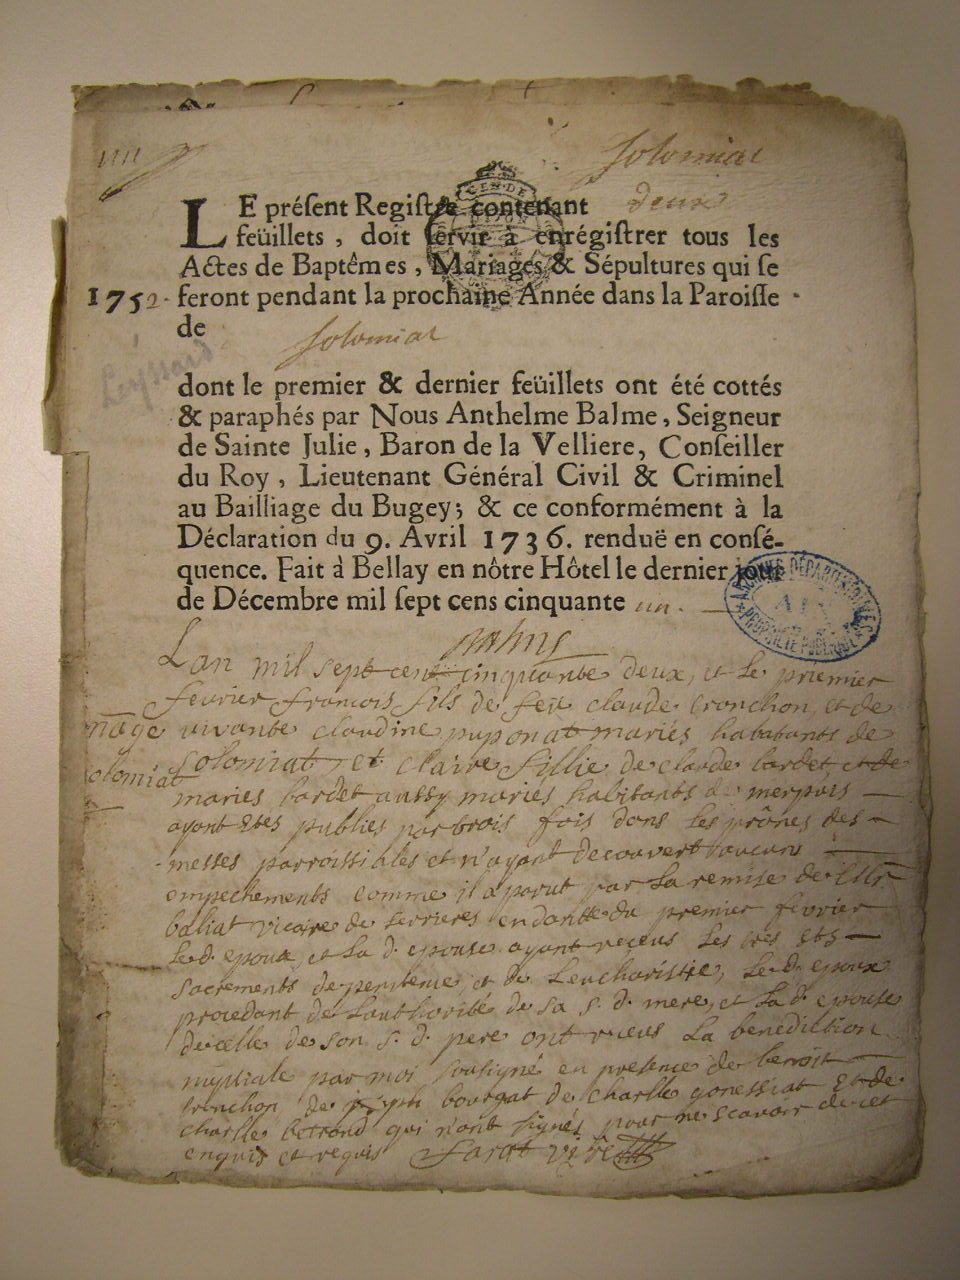 Solomiat
LE préſent Regiſtre contenant deux
feüillets, doit ſervir à enrégiſtrer tous les
Actes de Baptêmes, Mariages & Sépultures qui ſe
1752. feront pendant la prochaine Année dans la Paroiſſe
de Solomiat
dont le premier & dernier feüillets ont été cottés
& paraphés par Nous Anthelme Balme, Seigneur
de Sainte Julie, Baron de la Velliere, Conſeiller
du Roy, Lieutenant Général Civil & Criminel
au Bailliage du Bugey; & ce conformément à la
Déclaration du 9. Avril 1736. renduë en conſé-
quence. Fait à Bellay en nôtre Hôtel le dernier jour
de Décembre mil ſept cens cinquante un.
ARCHIVES DÉPARTEMENTALES AIN PROPRIÉTÉ PUBLIQUE
Lan mil sept cent cinquante deux, et le premier
fevrier francois fils de feü claude tronchon, et de
vivante claudine puponat mariés habitants de
Solomiat, et claire fillie de claude bardet, et de
maries bardet aussy mariés habitants de merpuis
ayant etes publies par trois fois dans les prônes des
messes parroissialles et n'ayant decouvert aucuns
empechements comme il a parut par la remise de
baliat vicaire de serrieres en datte du premier fevrier
le d. epoux et la d. epouse ayant receus les
sacrements de penitence, et de Leucharistie, le d. epoux
procedant de Lauthorité de sa s. d. mere, et la d. epouse
de celle de son s. d. pere ont receus la benediction
nuptiale par moi soussigné en presence de benoit
tronchon, de joseph bourgat de charle gonessiat et de
charle betrand qui n'ont signés pour ne scavoir de cet
enquis et requis Sarat vire